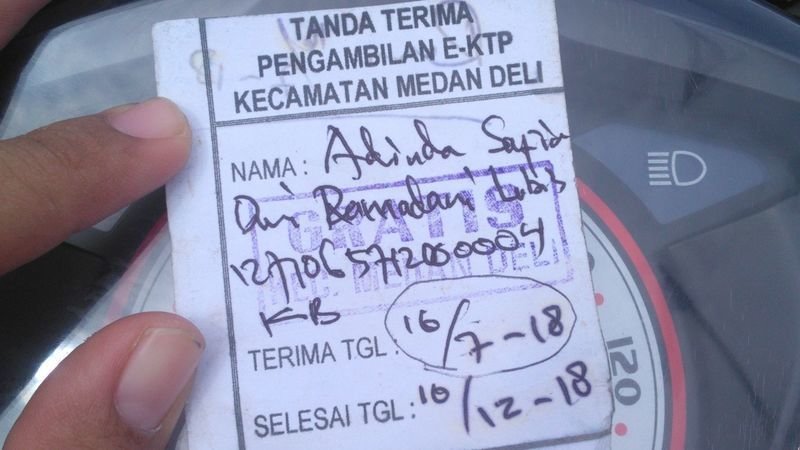 TANDA TERIMA
PENGAMBILAN E-KTP
KECAMATAN MEDAN DELI
NAMA : Adinda
Dwi Ramadani Lubis
GRATIS
1271065712000004
KEC. MEDAN DELI
KB
TERIMA TGL : 16/7-18
SELESAI TGL : 16/12-18
120